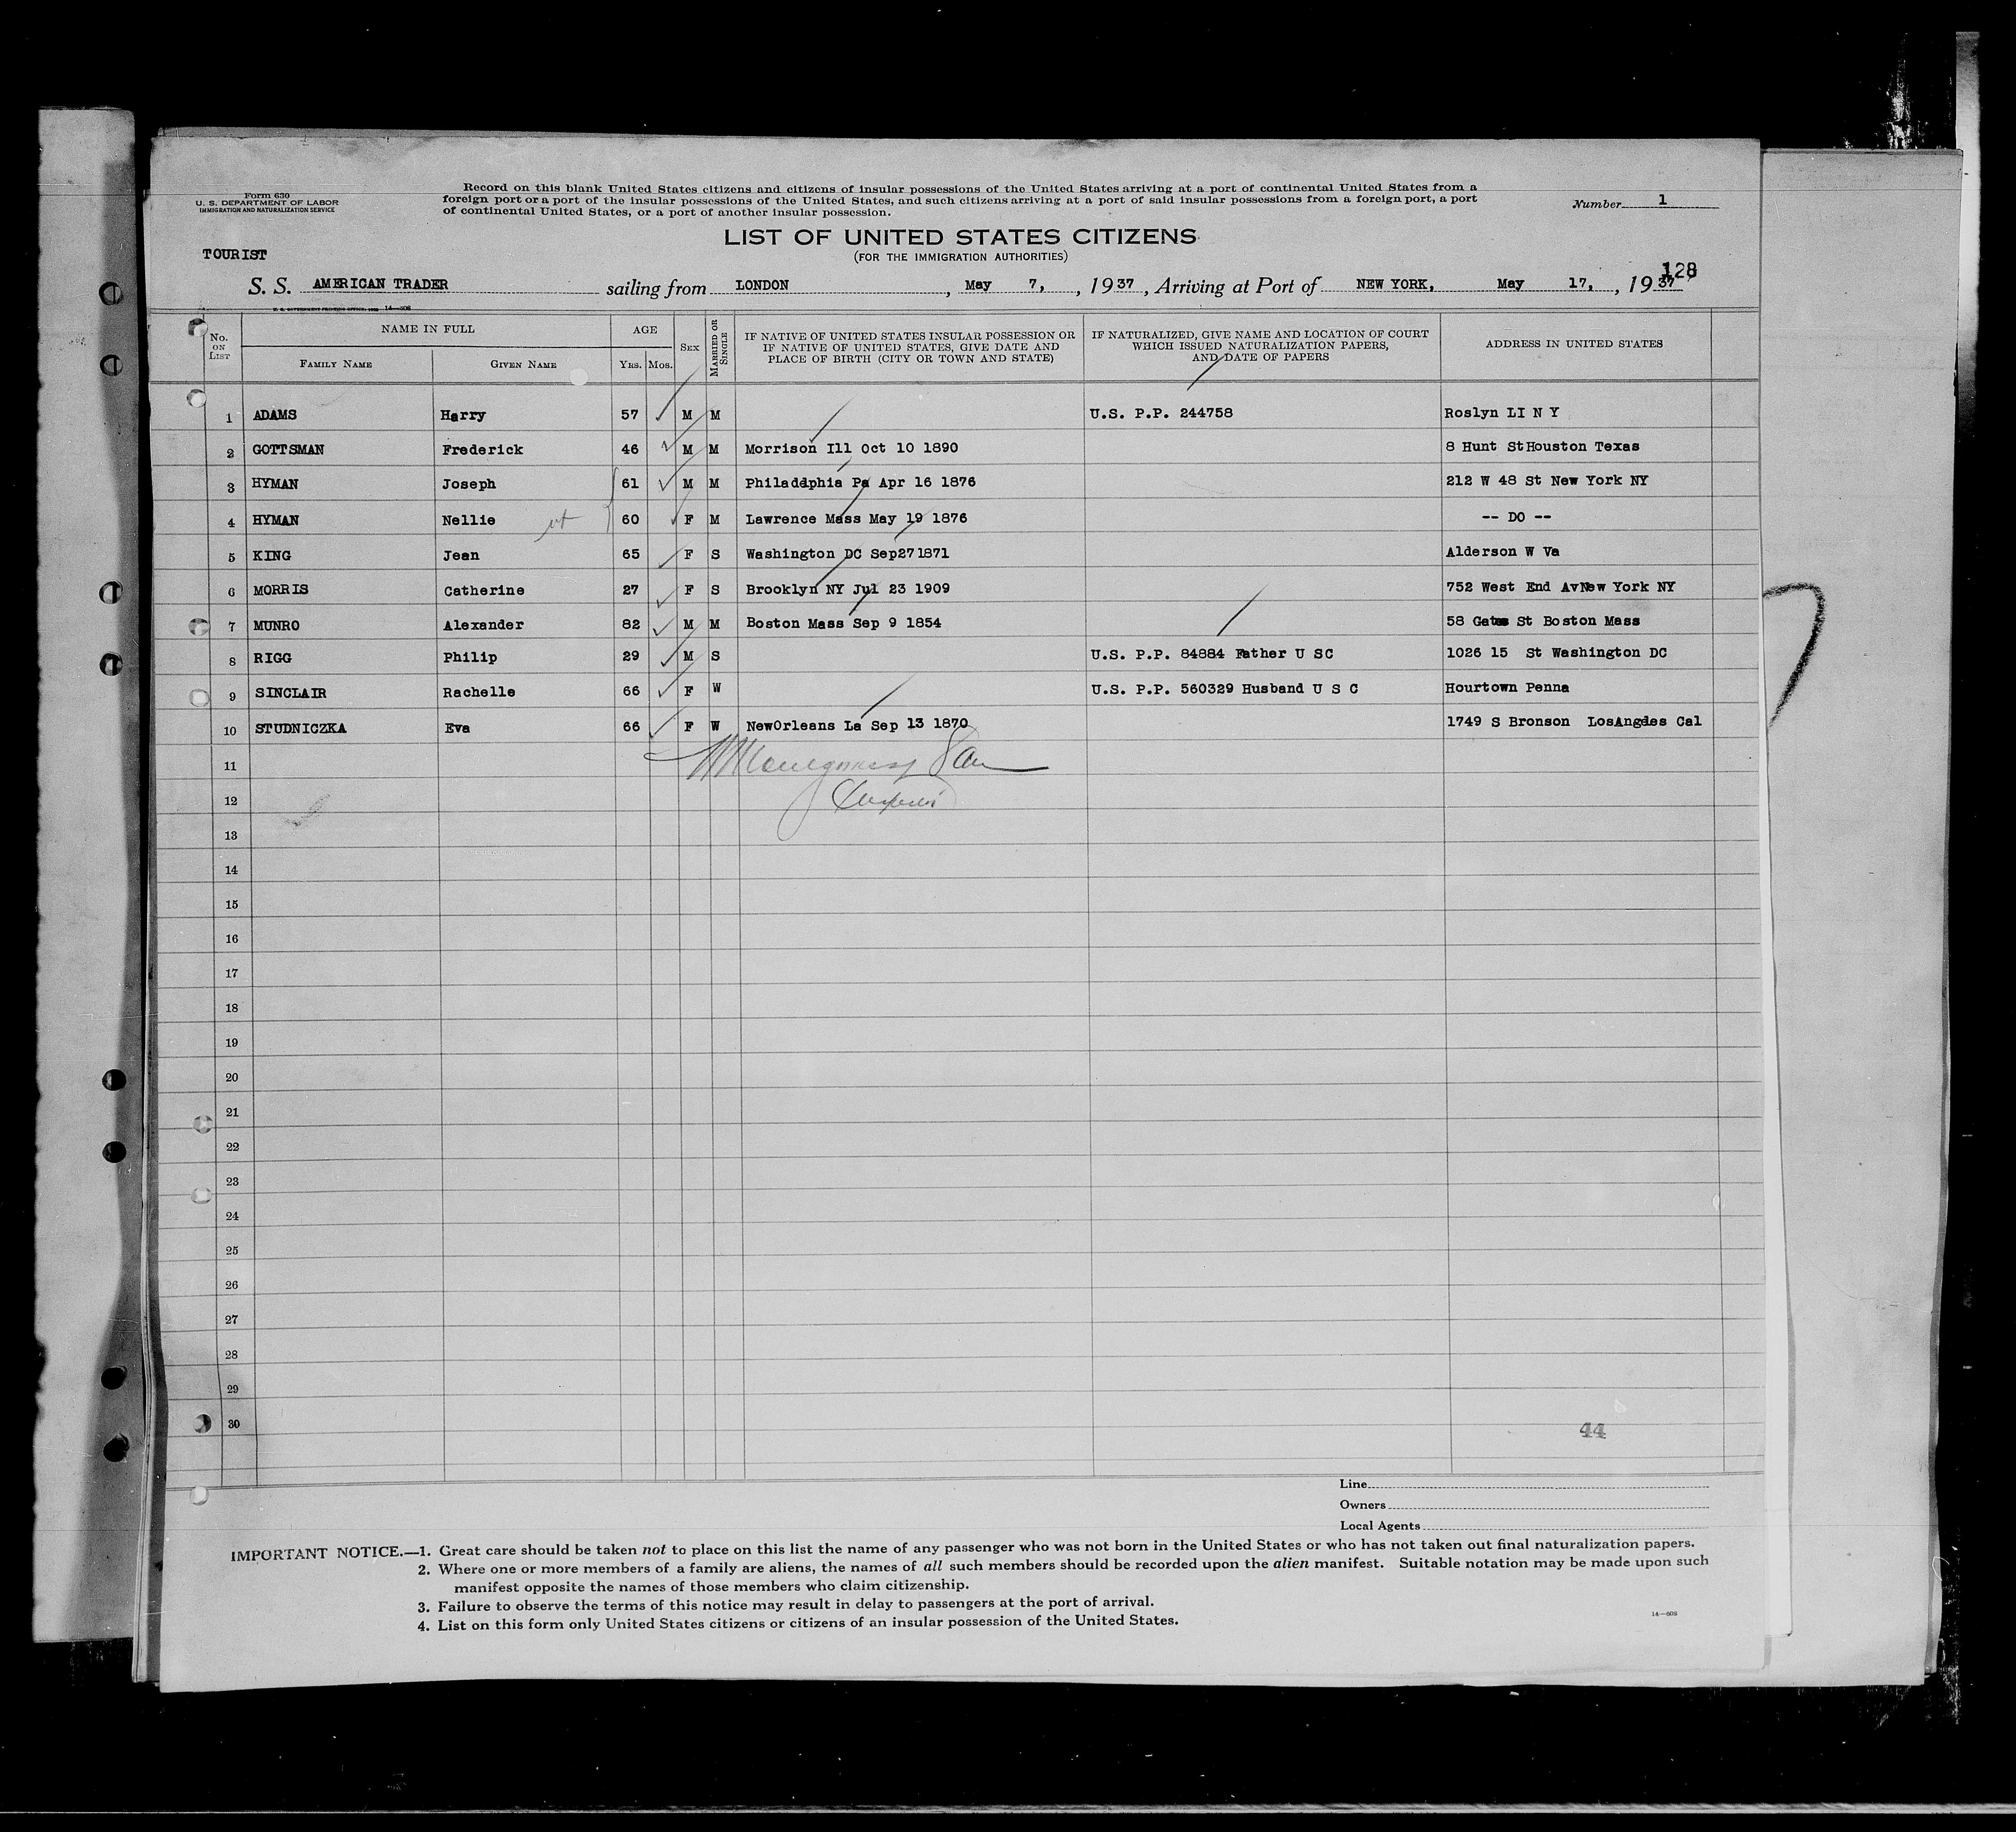 Form 630
U. S. DEPARTMENT OF LABOR
IMMIGRATION AND NATURALIZATION SERVICE
Record on this blank United States citizens and citizens of insular possessions of the United States arriving at a port of continental United States from a
foreign port or a port of the insular possessions of the United States, and such citizens arriving at a port of said insular possessions from a foreign port, a port
of continental United States, or a port of another insular possession.
Number 1
LIST OF UNITED STATES CITIZENS
(FOR THE IMMIGRATION AUTHORITIES)
TOURIST
128
S. S. AMERICAN TRADER sailing from LONDON, May 7, , 1937, Arriving at Port of NEW YORK, May 17, , 1937
No. ON LIST
NAME IN FULL
FAMILY NAME
GIVEN NAME
AGE
YRS. MOS.
SEX
MARRIED OR SINGLE
IF NATIVE OF UNITED STATES INSULAR POSSESSION OR
IF NATIVE OF UNITED STATES, GIVE DATE AND
PLACE OF BIRTH (CITY OR TOWN AND STATE)
IF NATURALIZED, GIVE NAME AND LOCATION OF COURT
WHICH ISSUED NATURALIZATION PAPERS,
AND DATE OF PAPERS
ADDRESS IN UNITED STATES
1 ADAMS Harry 57 M M U.S. P.P. 244758 Roslyn LI N Y
2 GOTTSMAN Frederick 46 M M Morrison Ill Oct 10 1890 8 Hunt St Houston Texas
3 HYMAN Joseph 61 M M Philaddphia Pa Apr 16 1876 212 W 48 St New York NY
4 HYMAN Nellie 60 F M Lawrence Mass May 19 1876 -- DO --
5 KING Jean 65 F S Washington DC Sep27 1871 Alderson W Va
6 MORRIS Catherine 27 F S Brooklyn NY Jul 23 1909 752 West End AvNew York NY
7 MUNRO Alexander 82 M M Boston Mass Sep 9 1854 58 Gates St Boston Mass
8 RIGG Philip 29 M S U.S. P.P. 84884 Father U SC 1026 15 St Washington DC
9 SINCLAIR Rachelle 66 F W U.S. P.P. 560329 Husband U S C Hourtown Penna
10 STUDNICZKA Eva 66 F W NewOrleans La Sep 13 1870 1749 S Bronson LosAngdes Cal
11
12
13
14
15
16
17
18
19
20
21
22
23
24
25
26
27
28
29
30
44
Line
Owners
Local Agents
IMPORTANT NOTICE.—1. Great care should be taken not to place on this list the name of any passenger who was not born in the United States or who has not taken out final naturalization papers.
2. Where one or more members of a family are aliens, the names of all such members should be recorded upon the alien manifest. Suitable notation may be made upon such
manifest opposite the names of those members who claim citizenship.
3. Failure to observe the terms of this notice may result in delay to passengers at the port of arrival.
4. List on this form only United States citizens or citizens of an insular possession of the United States.
14—608